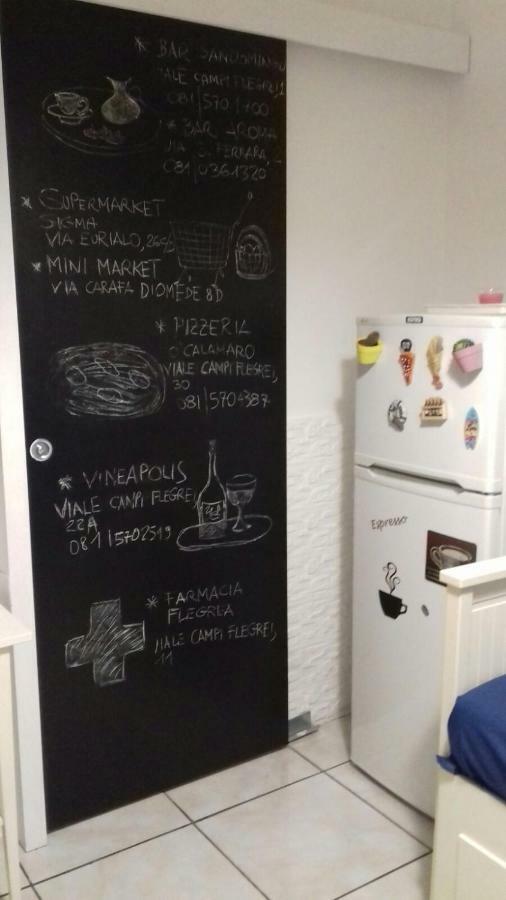 * BAR SANDOMINGO
VIALE CAMPI FLEGREI,
081/570.1700
* BAR AROMA
VIA G. FERRARA,
081/0361320
* SUPERMARKET
SIGMA
VIA EURIALO,
* MINI MARKET
VIA CARAFA DIOMEDE 8D
* PIZZERIA
O' CALAMARO
VIALE CAMPI FLEGREI,
30
081/5704387
* VINEAPOLIS
VIALE CAMPI FLEGREI
22A
081/5702519
* FARMACIA
FLEGREA
VIALE CAMPI FLEGREI,
11
Espresso